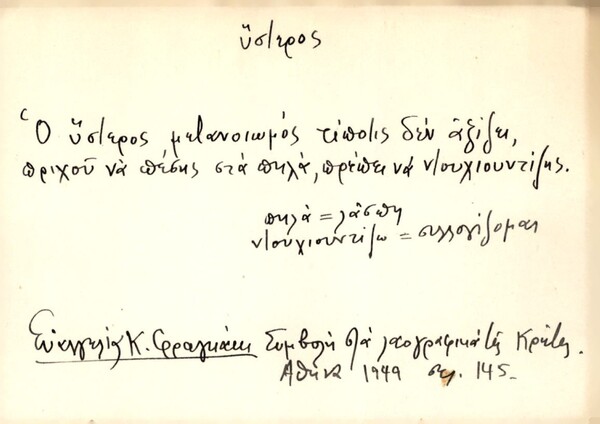 ὕστερος
Ὁ ὕστερος μετανοιωμός τίποτις δὲν ἀξίζει,
πριχοῦ νὰ πέσης στὰ πηλὰ, πρέπει νά ντουχιουντίζης.
πηλὰ = λάσπη
ντουχιουντίζω = συλλογίζομαι
Εὐαγγελίας Κ. Φραγκάκη Συμβολὴ στὰ λαογραφικὰ τῆς Κρήτης.
Ἀθήνα 1949 σελ. 145-